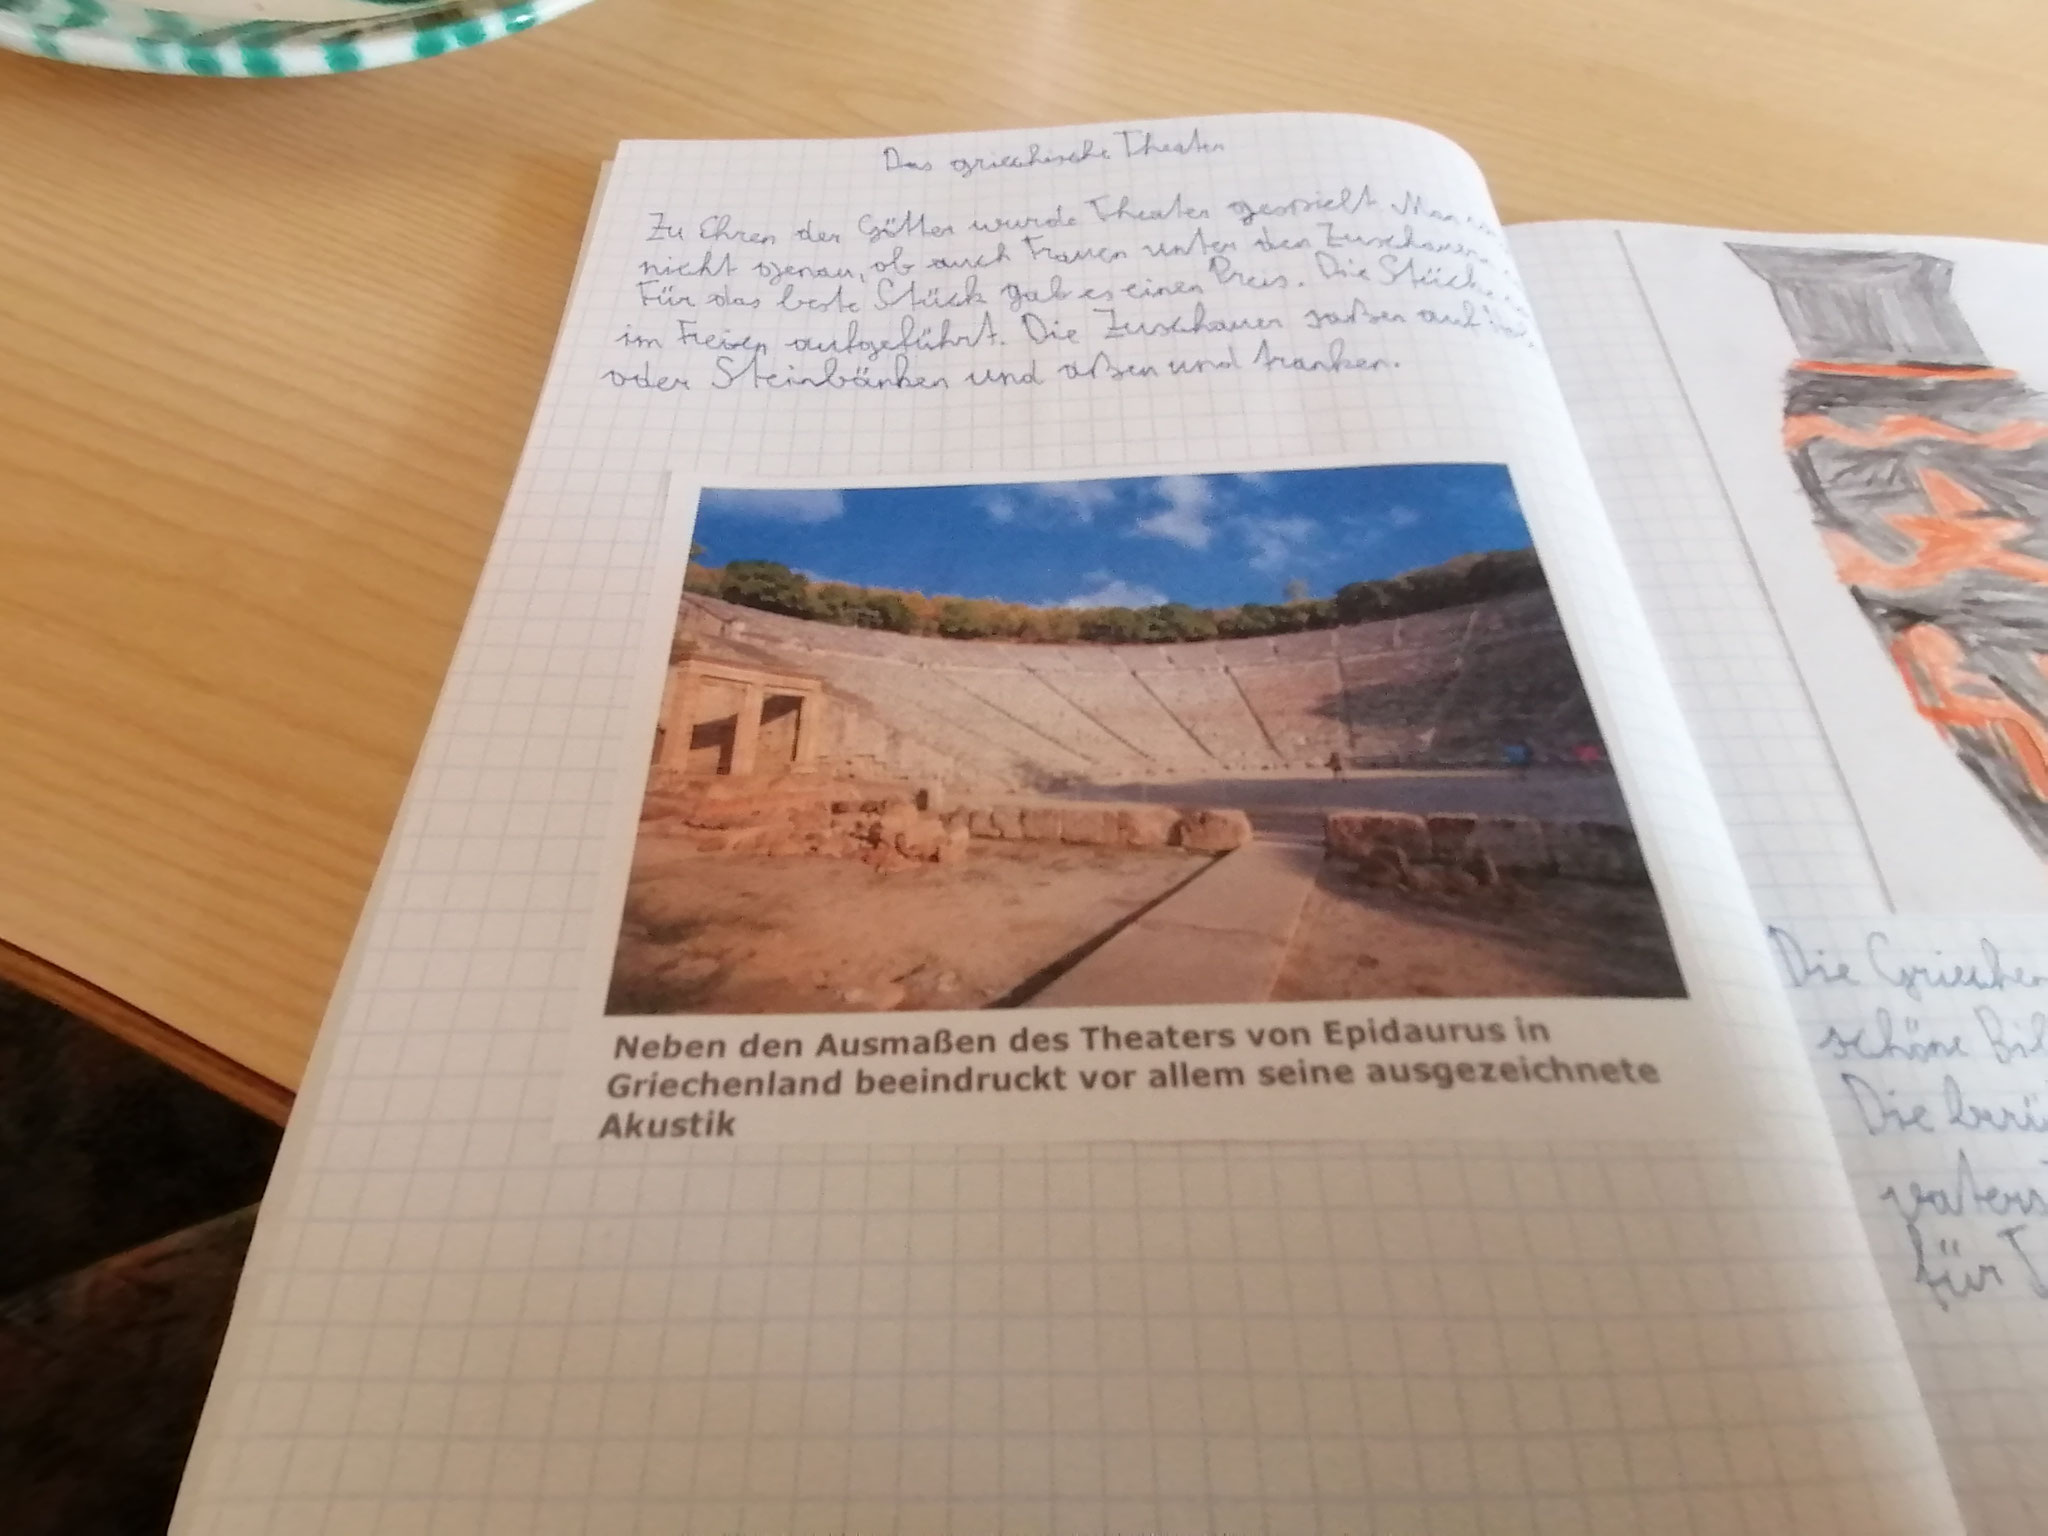 Das griechische Theater
Zu Ehren der Götter wurde Theater gespielt. Man
nicht genau, ob auch Frauen unter den Zuschauern
Für das beste Stück gab es einen Preis. Die Stücke
im Freien aufgeführt. Die Zuschauer saßen auf
oder Steinbänken und aßen und tranken.
Neben den Ausmaßen des Theaters von Epidaurus in
Griechenland beeindruckt vor allem seine ausgezeichnete
Akustik
Die Griechen
schöne
Die
für